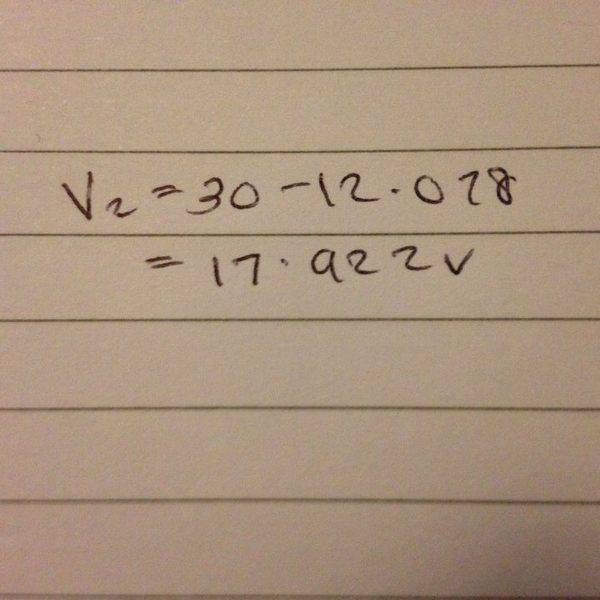 V₂ = 30 - 12.078
= 17.922V